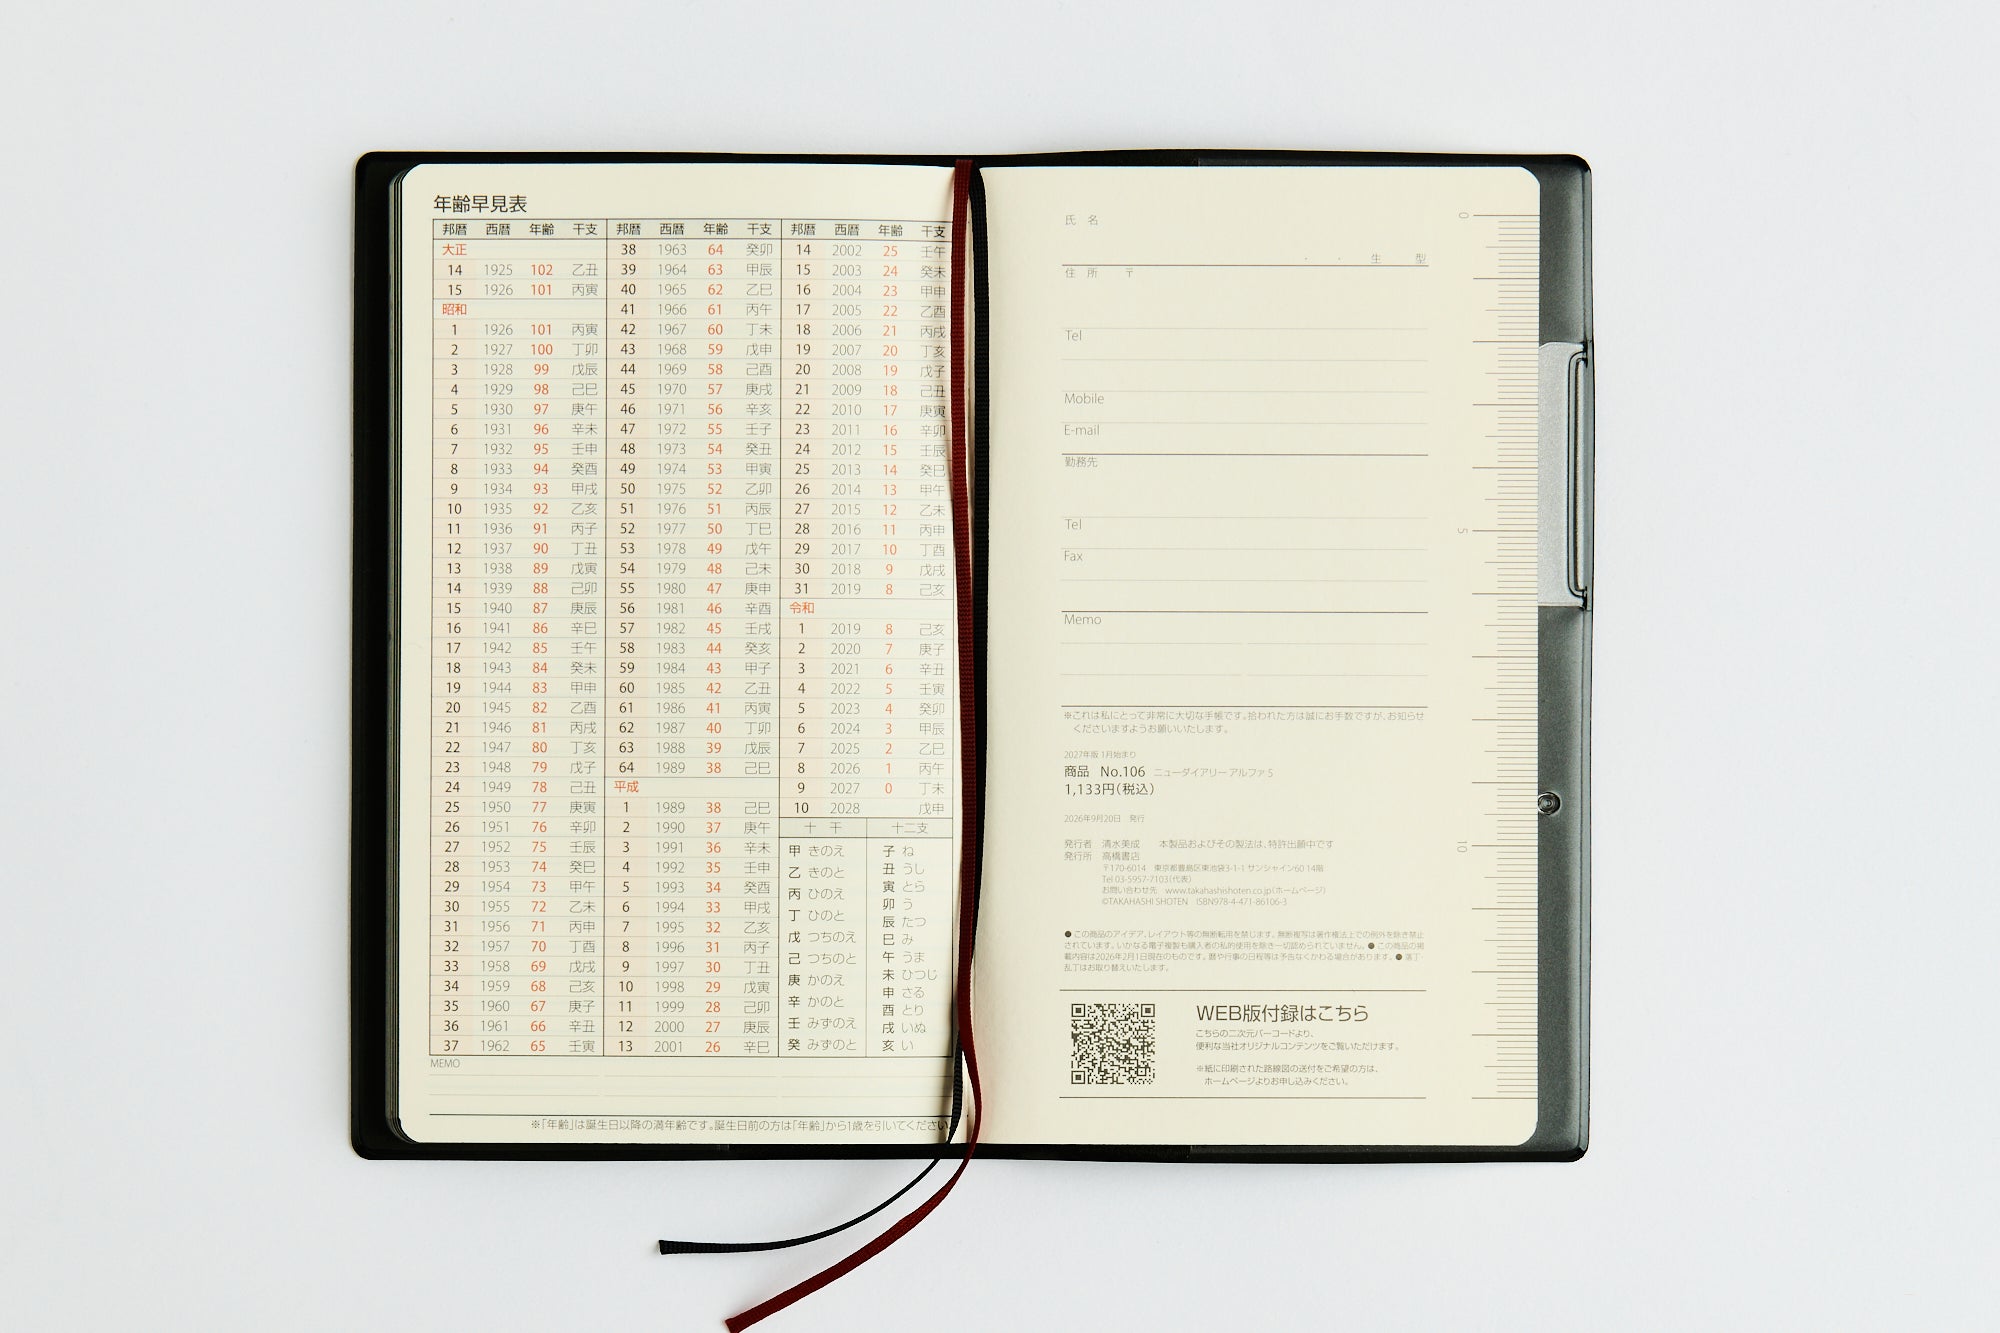 年齢早見表
邦暦 西暦 年齢 干支
大正
14 1925 102 乙丑
15 1926 101 丙寅
昭和
1 1926 101 丙寅
2 1927 100 丁卯
3 1928 99 戊辰
4 1929 98 己巳
5 1930 97 庚午
6 1931 96 辛未
7 1932 95 壬申
8 1933 94 癸酉
9 1934 93 甲戌
10 1935 92 乙亥
11 1936 91 丙子
12 1937 90 丁丑
13 1938 89 戊寅
14 1939 88 己卯
15 1940 87 庚辰
16 1941 86 辛巳
17 1942 85 壬午
18 1943 84 癸未
19 1944 83 甲申
20 1945 82 乙酉
21 1946 81 丙戌
22 1947 80 丁亥
23 1948 79 戊子
24 1949 78 己丑
25 1950 77 庚寅
26 1951 76 辛卯
27 1952 75 壬辰
28 1953 74 癸巳
29 1954 73 甲午
30 1955 72 乙未
31 1956 71 丙申
32 1957 70 丁酉
33 1958 69 戊戌
34 1959 68 己亥
35 1960 67 庚子
36 1961 66 辛丑
37 1962 65 壬寅
邦暦 西暦 年齢 干支
38 1963 64 癸卯
39 1964 63 甲辰
40 1965 62 乙巳
41 1966 61 丙午
42 1967 60 丁未
43 1968 59 戊申
44 1969 58 己酉
45 1970 57 庚戌
46 1971 56 辛亥
47 1972 55 壬子
48 1973 54 癸丑
49 1974 53 甲寅
50 1975 52 乙卯
51 1976 51 丙辰
52 1977 50 丁巳
53 1978 49 戊午
54 1979 48 己未
55 1980 47 庚申
56 1981 46 辛酉
57 1982 45 壬戌
58 1983 44 癸亥
59 1984 43 甲子
60 1985 42 乙丑
61 1986 41 丙寅
62 1987 40 丁卯
63 1988 39 戊辰
64 1989 38 己巳
平成
1 1989 38 己巳
2 1990 37 庚午
3 1991 36 辛未
4 1992 35 壬申
5 1993 34 癸酉
6 1994 33 甲戌
7 1995 32 乙亥
8 1996 31 丙子
9 1997 30 丁丑
10 1998 29 戊寅
11 1999 28 己卯
12 2000 27 庚辰
13 2001 26 辛巳
邦暦 西暦 年齢 干支
14 2002 25 壬午
15 2003 24 癸未
16 2004 23 甲申
17 2005 22 乙酉
18 2006 21 丙戌
19 2007 20 丁亥
20 2008 19 戊子
21 2009 18 己丑
22 2010 17 庚寅
23 2011 16 辛卯
24 2012 15 壬辰
25 2013 14 癸巳
26 2014 13 甲午
27 2015 12 乙未
28 2016 11 丙申
29 2017 10 丁酉
30 2018 9 戊戌
31 2019 8 己亥
令和
1 2019 8 己亥
2 2020 7 庚子
3 2021 6 辛丑
4 2022 5 壬寅
5 2023 4 癸卯
6 2024 3 甲辰
7 2025 2 乙巳
8 2026 1 丙午
9 2027 0 丁未
10 2028 戊申
十 干
甲 きのえ
乙 きのと
丙 ひのえ
丁 ひのと
戊 つちのえ
己 つちのと
庚 かのえ
辛 かのと
壬 みずのえ
癸 みずのと
十二支
子 ね
丑 うし
寅 とら
卯 う
辰 たつ
巳 み
午 うま
未 ひつじ
申 さる
酉 とり
戌 いぬ
亥 い
MEMO
※「年齢」は誕生日以降の満年齢です。誕生日前の方は「年齢」から1歳を引いてください。
氏 名
・ ・ 生 型
住 所 〒
Tel
Mobile
E-mail
勤務先
Tel
Fax
Memo
※これは私にとって非常に大切な手帳です。拾われた方は誠にお手数ですが、お知らせ
くださいますようお願いいたします。
2027年版 1月始まり
商品 No.106 ニューダイアリー アルファ 5
1,133円(税込)
2026年9月20日 発行
発行者 清水美成 本製品およびその製法は、特許出願中です
発行所 高橋書店
〒170-6014 東京都豊島区東池袋3-1-1 サンシャイン60 14階
Tel 03-5957-7103(代表)
お問い合わせ先 www.takahashishoten.co.jp(ホームページ)
©TAKAHASHI SHOTEN ISBN978-4-471-86106-3
● この商品のアイデア、レイアウト等の無断転用を禁じます。無断複写は著作権法上での例外を除き禁止
されています。いかなる電子複製も購入者の私的使用を除き一切認められていません。● この商品の掲
載内容は2026年2月1日現在のものです。暦や行事の日程等は予告なくかわる場合があります。● 落丁
乱丁はお取り替えいたします。
WEB版付録はこちら
こちらの二次元バーコードより、
便利な当社オリジナルコンテンツをご覧いただけます。
※紙に印刷された路線図の送付をご希望の方は、
ホームページよりお申し込みください。
0
5
10